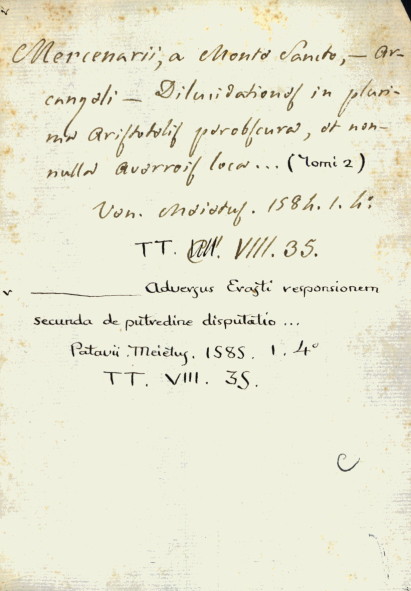 Mercenarii, a Monte Sancto, – Ar-
cangeli – Dilucidationes in pluri-
ma Aristotelis perobscura, et non-
nulla Averrois loca... (Tomi 2)
Ven. Meietus. 1584. 1. 4º
TT. VIII. 35.
Adversus Erasti responsionem
secunda de putredine disputatio...
Patavii. Meietus. 1585. 1. 4º
TT. VIII. 35.
C